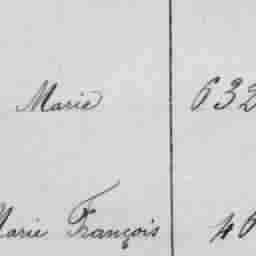 Marie 632
Marie François 46